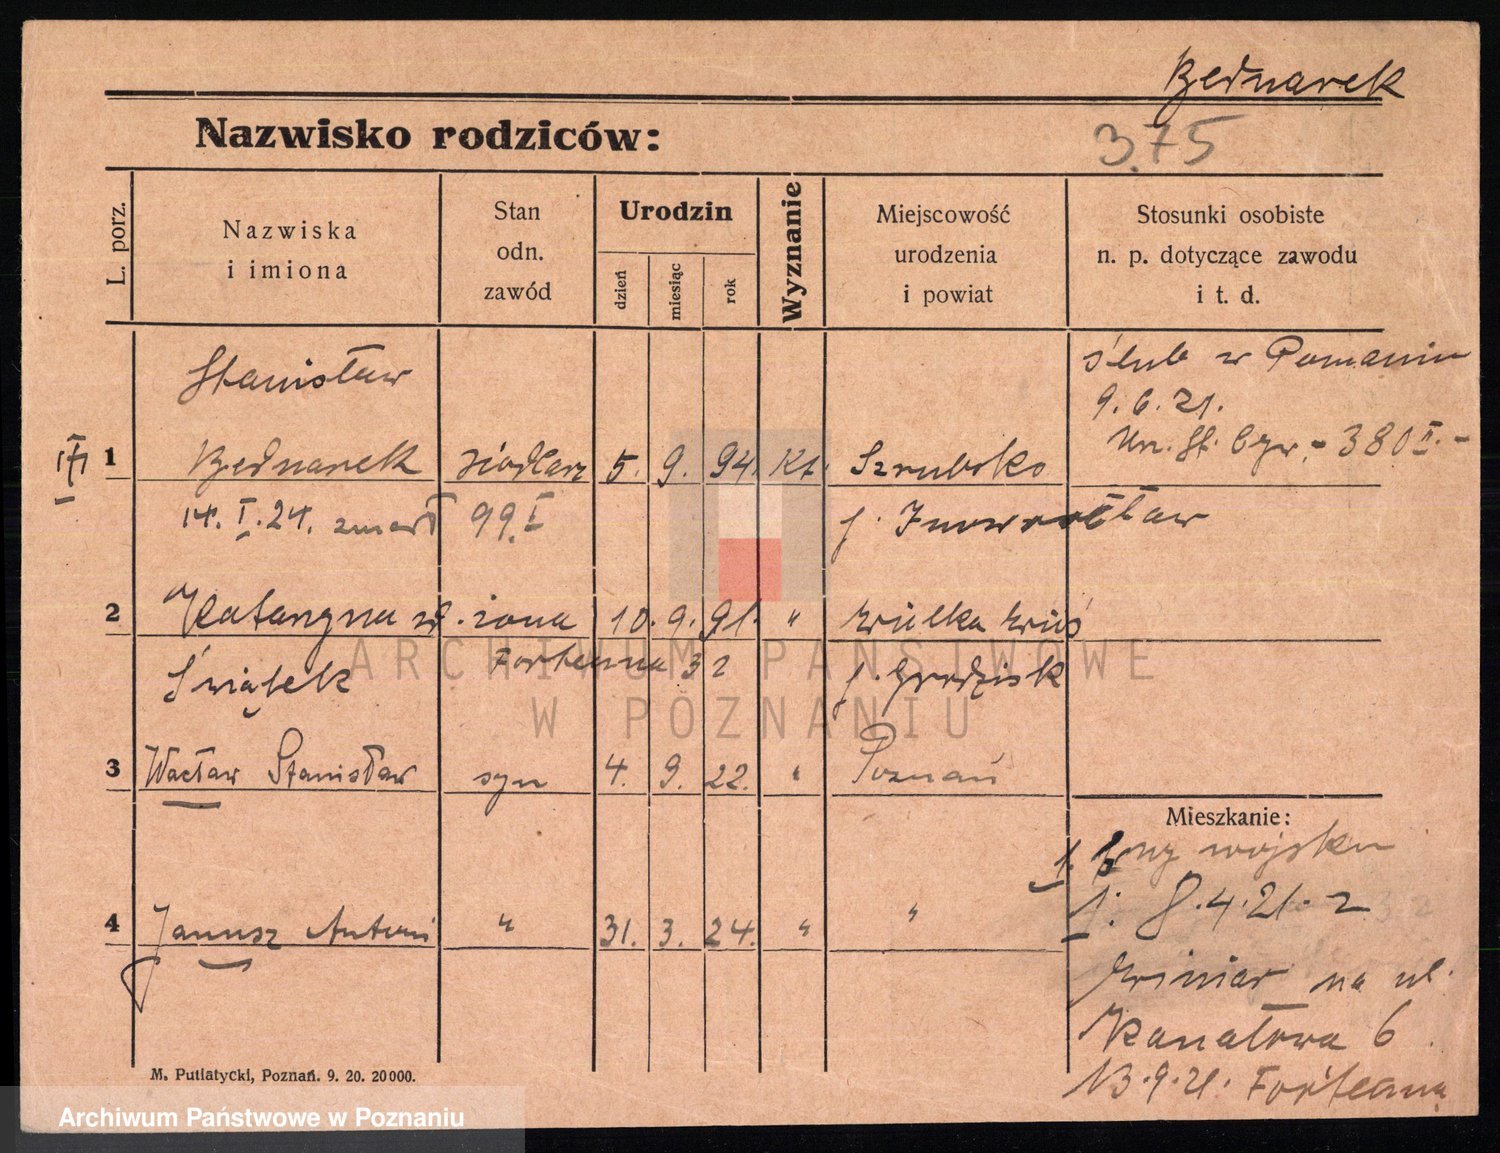 Bednarek
Nazwisko rodziców:
3.75
L. porz.
Nazwiska
i imiona
Stan
odn.
zawód
Urodzin
dzień
miesiąc
rok
Wyznanie
Miejscowość
urodzenia
i powiat
Stosunki osobiste
n. p. dotyczące zawodu
i t. d.
Stanisław
ślub w Poznaniu
9.6.21.
380 I.-
1 Bednarek siodlarz 5. 9. 94. Kt. Szrubsko
14.I.24. zmarł 99.I
p. Inowrocław
2 Katarzyna zd. żona 10. 9. 91. " Wielka Wieś
Świątek Forteczna 32 p. Grodzisk
3 Wacław Stanisław syn 4. 9. 22. " Poznań
Mieszkanie:
1. przy wojsku
4 Janusz Antoni " 31. 3. 24. " "
1. 8.4.21. z
Winiar na ul.
Kanałowa 6
13.9.21. Forteczna
M. Putiatycki, Poznań. 9. 20. 20000.
ARCHIWUM PAŃSTWOWE
W POZNANIU
Archiwum Państwowe w Poznaniu